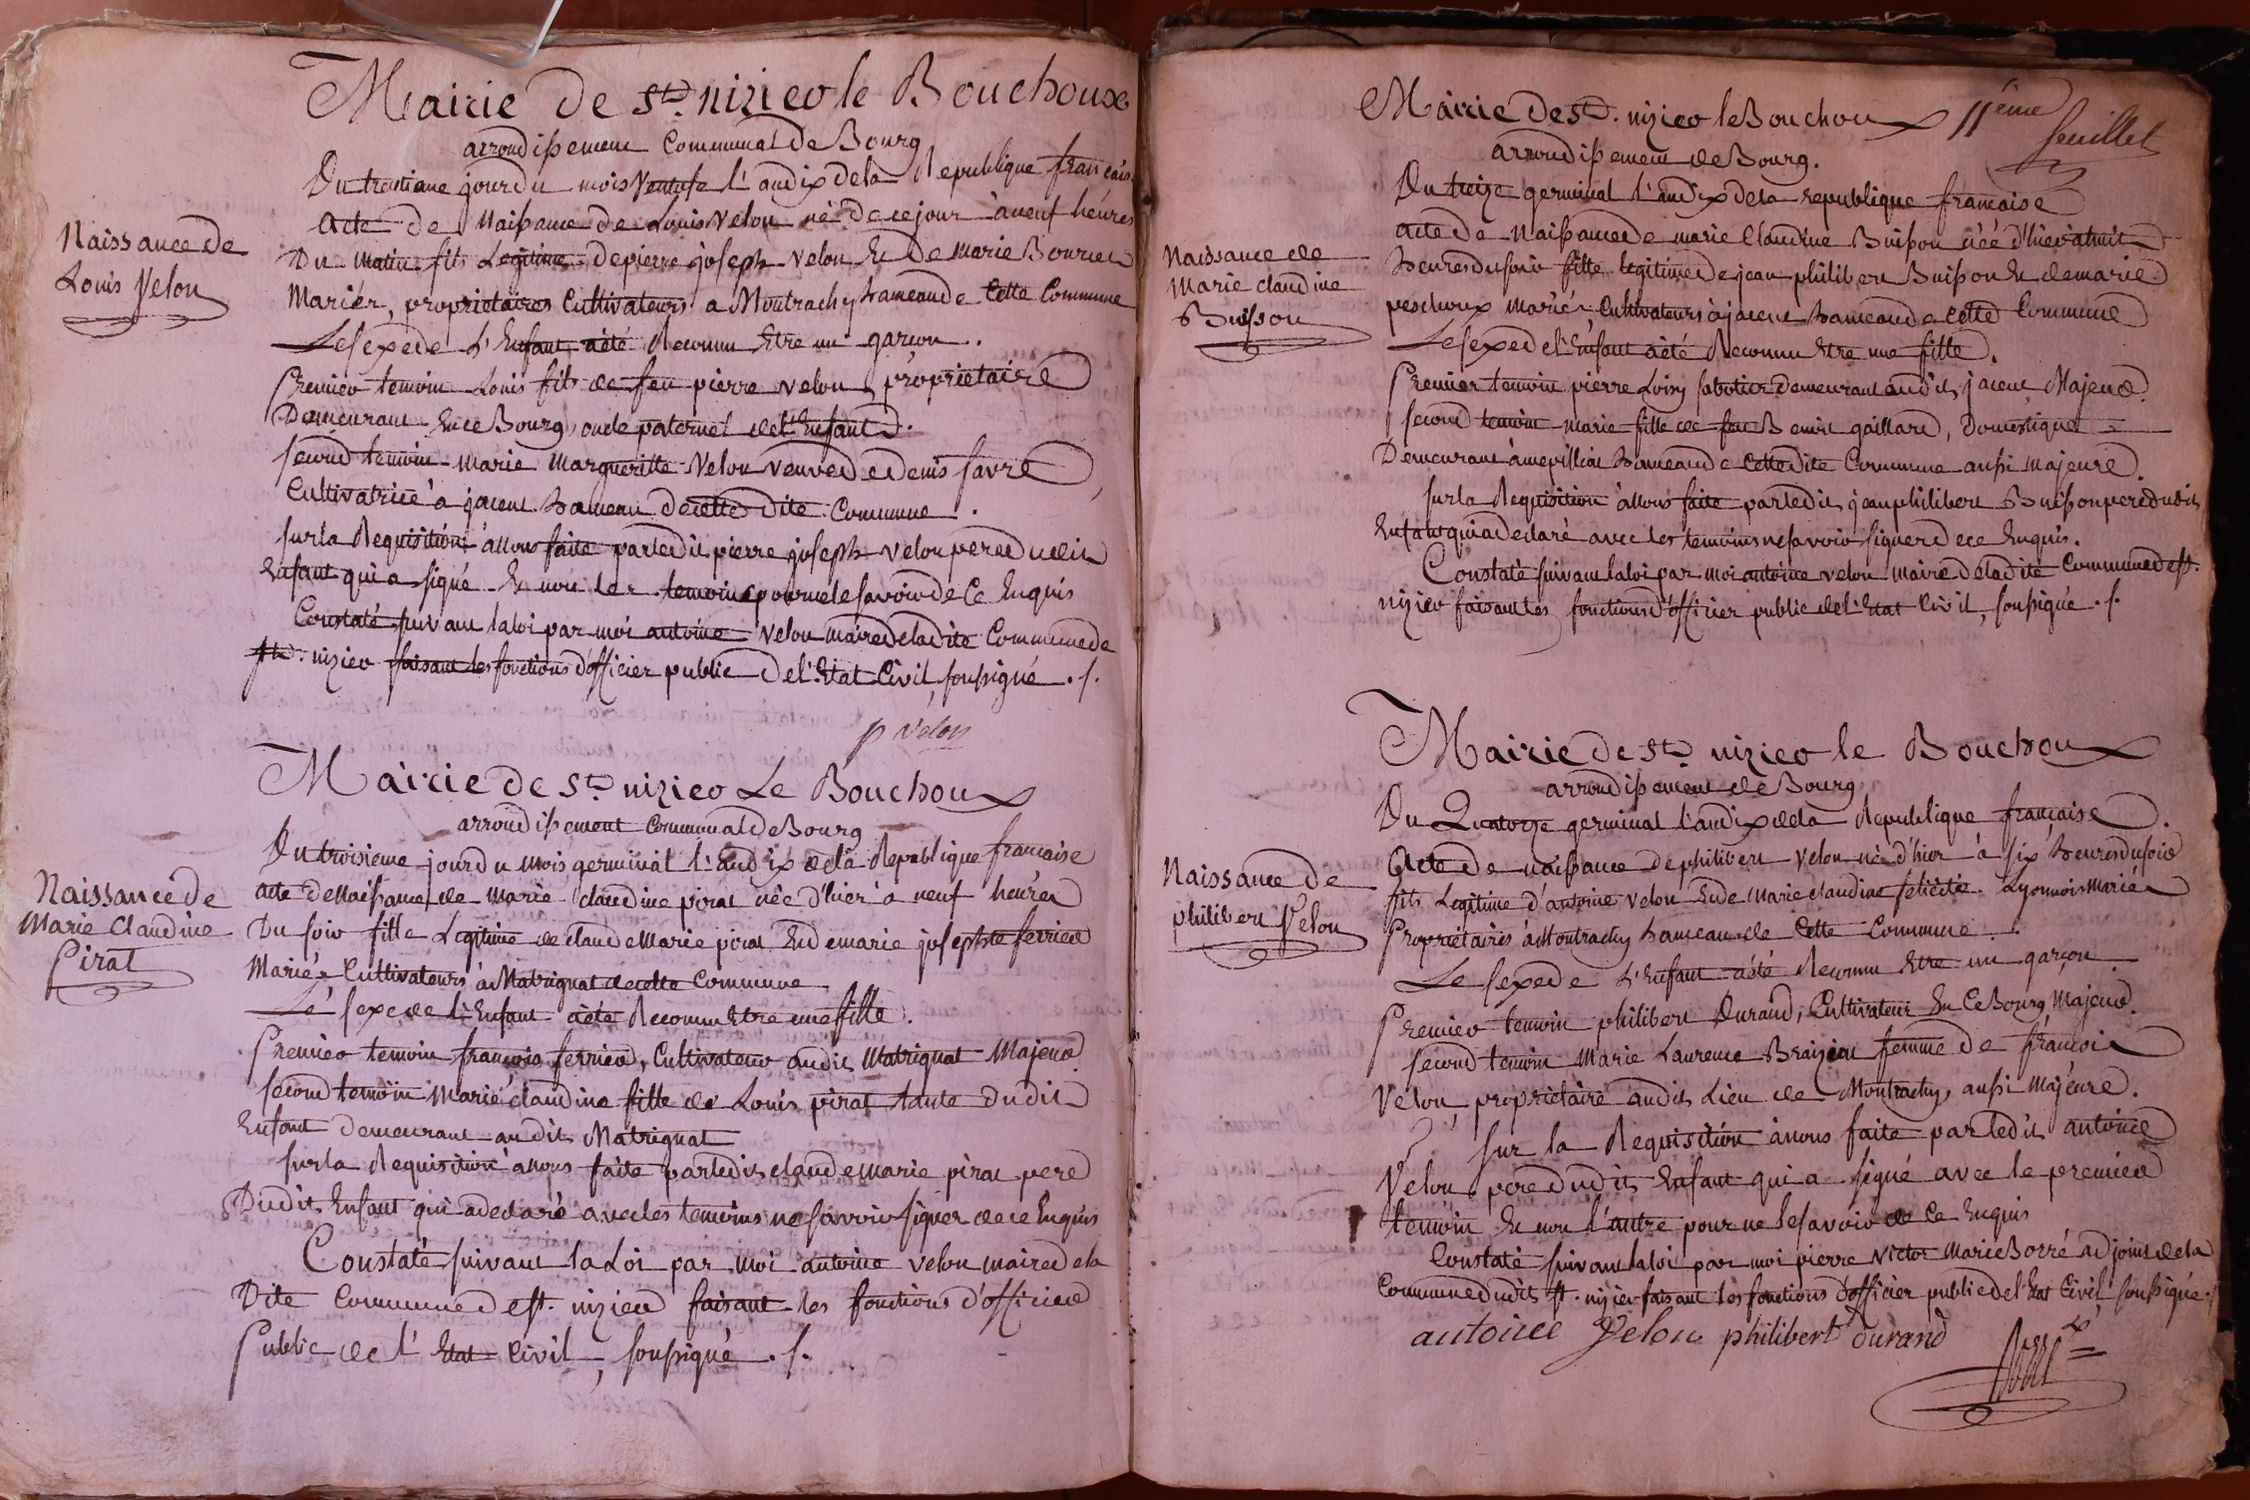 Mairie De St. nizier le Bouchoux
arrondissement Communal De Bourg
Du trentieme jour du mois Ventose l'an dix de la Republique française
Naissance de
Louis Velon
Acte De Naissance De Louis Velon né De ce jour à neuf heures
Du Matin fils Legitime de pierre joseph Velon Et De Marie Bourcet
Mariés, proprietaires Cultivateurs a Montrachy hameau de Cette Commune
Le sexe de L'Enfant a été Reconnu Etre un garçon.
Premier temoin Louis fils de feu pierre Velon proprietaire
Demeurant En ce Bourg, oncle paternel de l'Enfant.
second temoin Marie Margueritte Velon veuve de denis favre
Cultivatrice à jacent hameau De cette Dite Commune.
sur la Requisition à nous faite par ledit pierre joseph Velon pere dudit
Enfant qui a signé Et non les temoins pour ne le savoir de Ce Enquis
Constaté suivant la loi par moi antoine Velon maire de la dite Commune de
St. nizier faisant les fonctions d'officier public De l'Etat Civil, soussigné ./.
p Vélon
Mairie de St. nizier Le Bouchoux
arrondissement Communal de Bourg
Du troisieme jour du mois germinal l'an dix de la Republique francaise
Naissance de
Marie Claudine
Pirat
acte de Naissance de Marie claudine pirat née d'hier à neuf heures
Du soir fille Legitime de claude Marie pirat Et de marie josephte ferrier
Mariés Cultivateurs à Matrignat de cette Commune
Le sexe de l'Enfant a été Reconnu Etre une fille.
Premier temoin françois ferrier, Cultivateur audit Matrignat Majeur
second temoin Marie claudine fille de Louis pirat tante dudit
Enfant demeurant au dit Matrignat
sur la Requisition à nous faite par ledit claude Marie pirat pere
Dudit Enfant qui a declaré avec les temoins ne savoir signer de ce Enquis
Constaté suivant la Loi par moi antoine Velon maire de la
Dite Commune de St. nizier faisant les fonctions d'officier
Public de l'Etat Civil, soussigné ./.
Mairie De St. nizier le Bouchoux
11ème feuillet
arrondissement de Bourg.
Du treize germinal l'an dix de la republique francaise
Naissance de
Marie claudine
Buisson
acte de Naissance de marie Claudine Buisson née d'hier à huit
heures du soir fille legitime de jean philibert Buisson Et de marie
pescheux Mariés Cultivateurs à jacent hameau de cette Commune
Le sexe de l'Enfant a été Reconnu Etre une fille.
Premier temoin pierre Loisy sabotier demeurant audit jacent Majeur.
second temoin marie fille de feu Benoit gaillard, Domestique
Demeurant à mepillat hameau de cette dite Commune aussi Majeure.
sur la Requisition à nous faite par ledit jean philibert Buisson pere dudit
Enfant qui a declaré avec les temoins ne savoir signer de ce Enquis.
Constaté suivant la loi par moi antoine Velon maire de la dite Commune de St.
nizier faisant les fonctions d'officier public de l'Etat Civil, soussigné ./.
Mairie de St. nizier le Bouchoux
arrondissement de Bourg
Du Quatorze germinal l'an dix de la Republique française.
Naissance De
philibert Velon
Acte De naissance de philibert Velon né d'hier à six heures du soir
fils Legitime d'antoine Velon Et de Marie claudine felicité Lyonnois Mariés
Propriétaires à Montrachy hameau de Cette Commune.
Le sexe de L'Enfant a été Reconnu Etre un garçon
Premier temoin philibert Durand, Cultivateur En Ce Bourg Majeur.
second temoin Marie Laurence femme De françois
Velon proprietaire audit Lieu de Montrachy, aussi Majeure.
sur la Requisition à nous faite par ledit antoine
Velon pere dudit Enfant qui a signé avec le premier
temoin Et non l'autre pour ne le savoir de Ce Enquis
Constaté suivant la loi par moi pierre Victor Marie Borré adjoint de la
Commune dudit St. nizier faisant les fonctions d'officier public de l'Etat Civil soussigné ./.
antoine Velon philibert durand